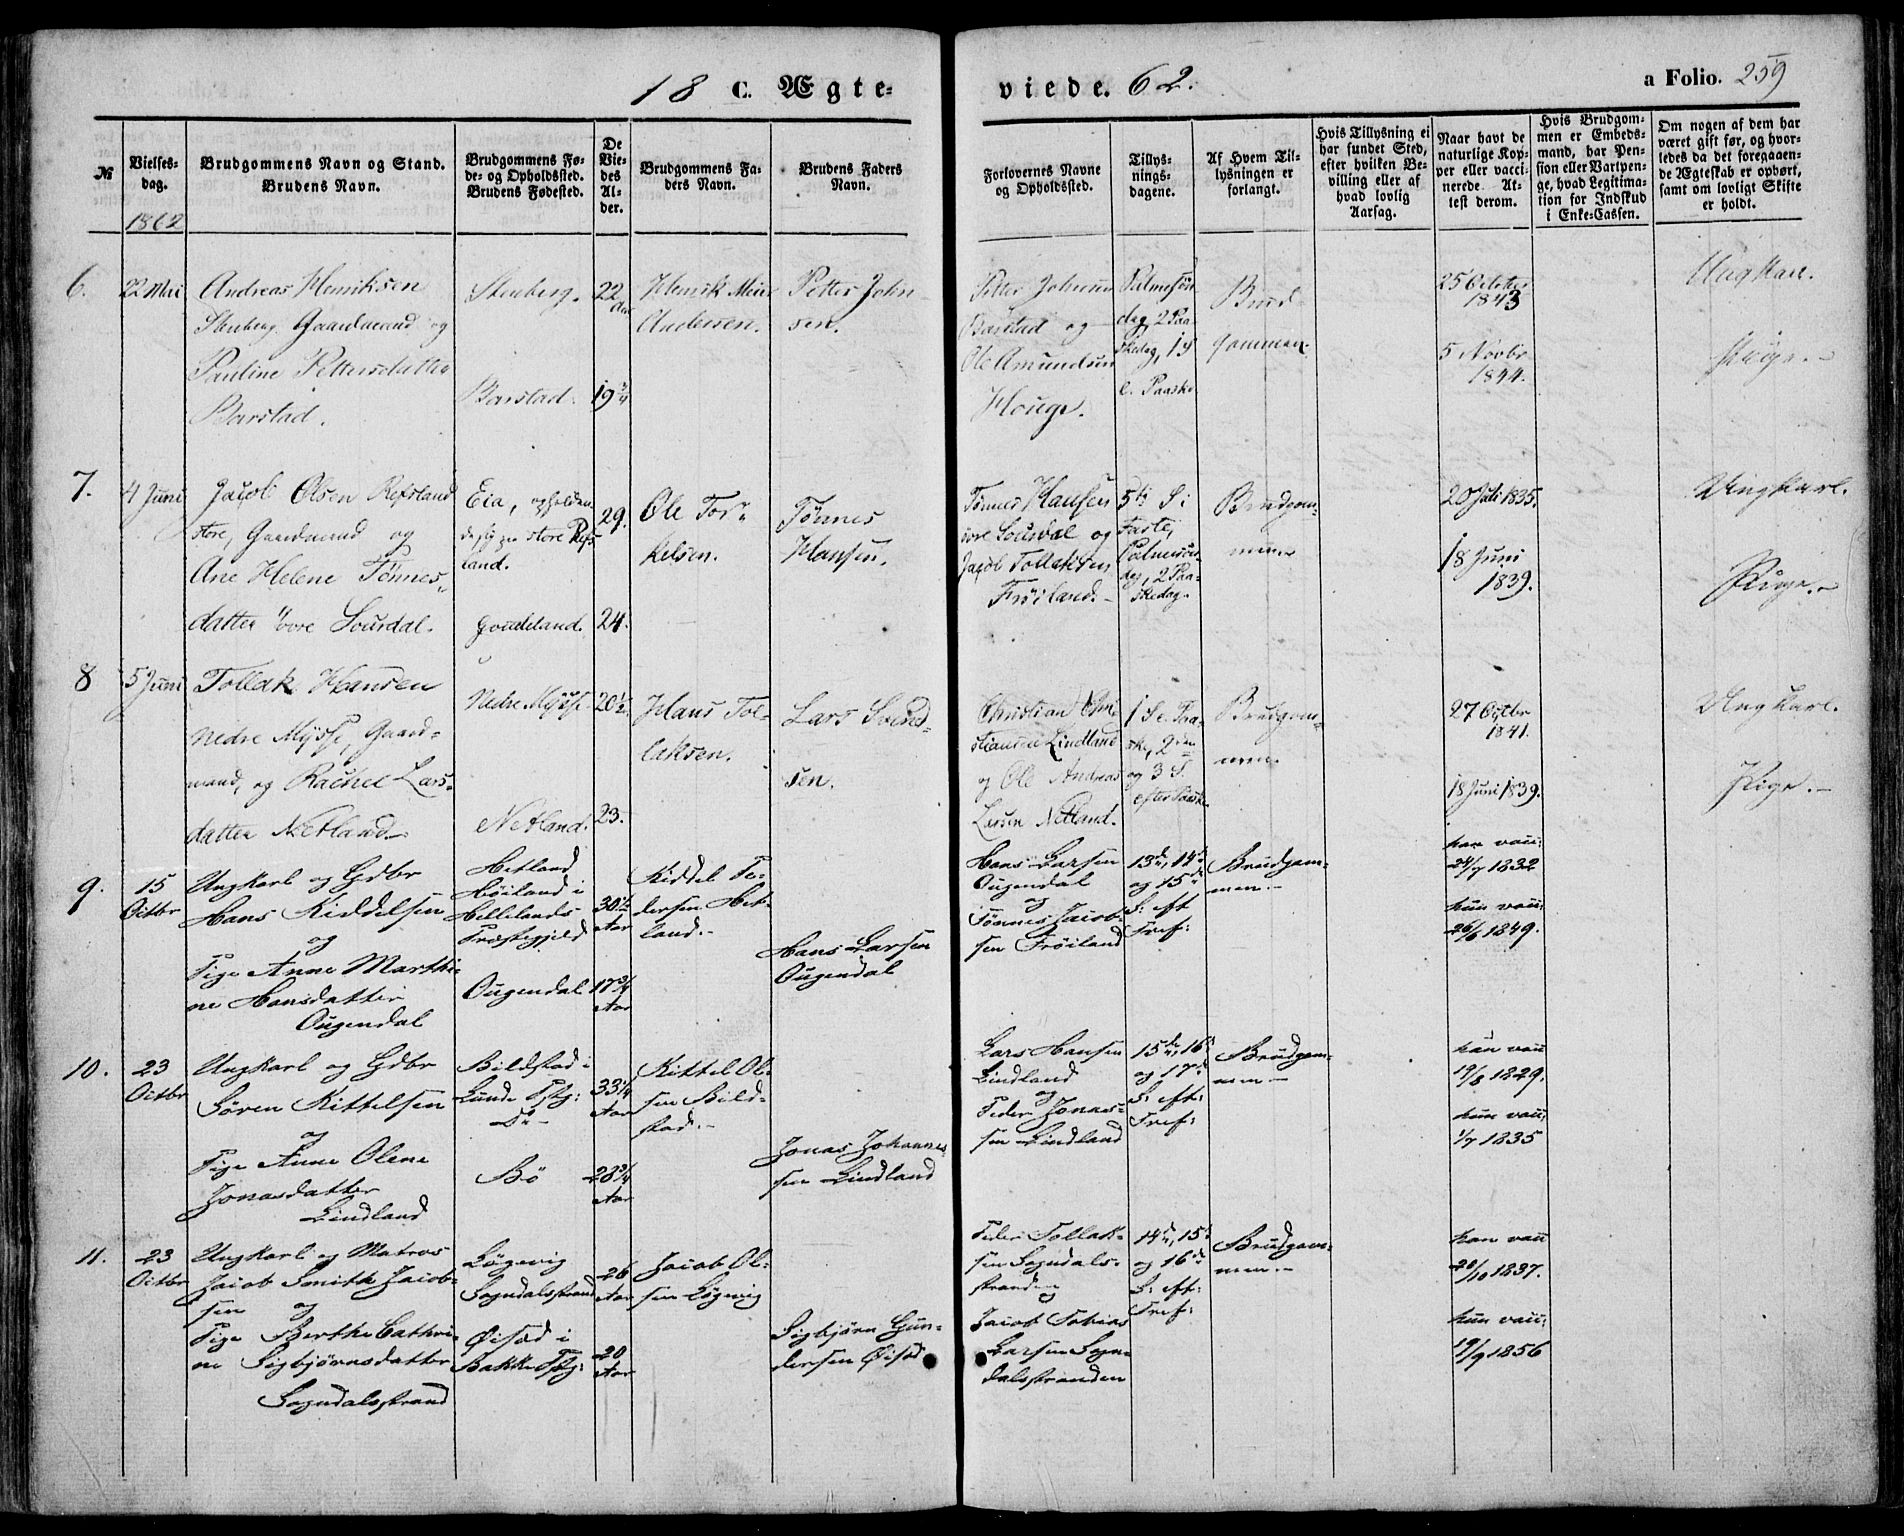 18 C. Ægte-
viede. 62.
a Folio. 259
№
Vielses-
dag.
1862
Brudgommens Navn og Stand.
Brudens Navn.
Brudgommens Fø-
de- og Opholdssted.
Brudens Fødested.
De
Vie-
des
Al-
der.
Brudgommens Fa-
ders Navn.
Brudens Faders
Navn.
Forlovernes Navne
og Opholdssted.
Tillys-
nings-
dagene.
Af Hvem Til-
lysningen er
forlangt.
Hvis Tillysning ei
har fundet Sted,
efter hvilken Be-
villing eller af
hvad lovlig
Aarsag.
Naar havt de
naturlige Kop-
per eller vacci-
nerede. At-
test derom.
Hvis Brudgom-
men er Embeds-
mand, har Pen-
sion eller Vartpen-
ge, hvad Legitima-
tion for Indskud
i Enke-Cassen.
Om nogen af dem har
været gift før, og hvor-
ledes da det foregaaen-
de Ægteskab er ophørt,
samt om lovligt Skifte
er holdt.
6.
22 Mai
Andreas Henriksen
Stenberg, Gaardmand og
Pauline Pettersdatter
Barstad.
Stenberg.
Barstad.
22
Aar
19 3/4
Henrik
Andersen.
Petter John
sen.
Petter Johnsen
Barstad og
Ole Amundsen
Houge.
Palmesøn
dag, 2 Paa-
skedag, 1 S
e. Paaske
Brud-
gommen
25 October
1843
5 Novbr
1844.
Ungkarl.
Pige.-
7.
4 Juni
Jacob Olsen Refsland
store, Gaardmand og
Ane Helene Tønnes-
datter øvre Sousdal.
Eia, opholden-
de sig paa store Refs
land.
Goudeland.
29.
24.
Ole Tor-
kelsen.
Tønnes
Hansen.
Tønnes Hansen
øvre Sousdal og
Jacob Tollaksen
Frøiland.-
5te S. i
Faste,
Palmesøn
dag, 2 Paa-
skedag.
Brudgom-
men
20 Juli 1835.
18 Juni
1839.
Ungkarl.
Pige.-
8
5 Juni
Tollak Hansen
nedre Mysse, Gaard-
mand, og Rachel Lars-
datter Netland.
Nedre Mysse.
Netland.
20 1/2
23.
Hans Tol-
laksen.
Lars Svend-
sen.
Christian Chri-
stiansen Lindland
og Ole Andreas
Larsen Netland.
1 S e. Paa-
ske, 2den
og 3 S.
efter Paaske
Brudgom-
men.
27 Octbr
1841.
18 Juni 1839.
Ungkarl.
Pige.-
9.
15
Octbr
Ungkarl og Gdbr
Hans Kiddelsen
og
Pige Anne Marthi-
ne Hansdatter
Ougendal
Hetland
Høiland i
Hellelands
Præstegjeld
Ougendal
30 1/2
Aar
17 3/4
Aar
Kiddel Pe-
dersen Het-
land.-
Hans Larsen
Ougendal
Hans Larsen
Ougendal
og
Tønnes Jacob-
sen Frøiland
13de, 14de
og 15de
S: eft
Tref:
Brudgom-
men.-
han vacc:
24/7 1832
hun vacc:
26/6 1849.
10.
23
Octbr
Ungkarl og Gdbr
Søren Kittelsen
og
Pige Anne Olene
Jonasdatter
Lindland
Bildstad i
Lunde Pstg:
Do-
Bø
33 1/4
Aar
28 3/4
Aar
Kittel Ol-
sen Bild-
stad.-
Jonas Johannes
sen Lindland
Lars Hansen
Lindland
og
Peder Jonas-
sen Lindland
15de, 16de
og 17de
S: eft:
Tref:
Brudgom-
men-
han vacc
19/8 1829.
hun vacc:
1/7 1835
11.
23
Octbr
Ungkarl og Matros
Jacob Smith Jacob-
sen
og
Pige Berthe Cathri-
ne Sigbjørnsdatter
Sogndalsstrand
Løgevig
Sogndalsstrand
Øisæd i
Bakke Pstg:
26
Aar
20
Aar
Jacob Ol-
sen Løgevig
Sigbjørn Gun-
dersen Øisæd
Peder Tollak-
sen Sogndals-
stranden
Jacob Tobias
Larsen Sogn-
dalsstranden
14de, 15de
og 16de
S: eft:
Tref:
Brudgom-
men.-
han vacc
28/10 1837.
hun vacc:
19/9 1856